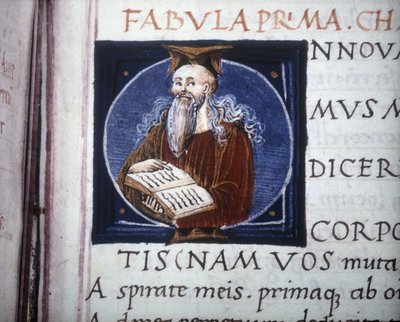 FABULA PRIMA. CHA
INNOVA
MUS M
DICERE
CORPO
TIS (NAM VOS muta
A spirate meis. primaq; ab oi